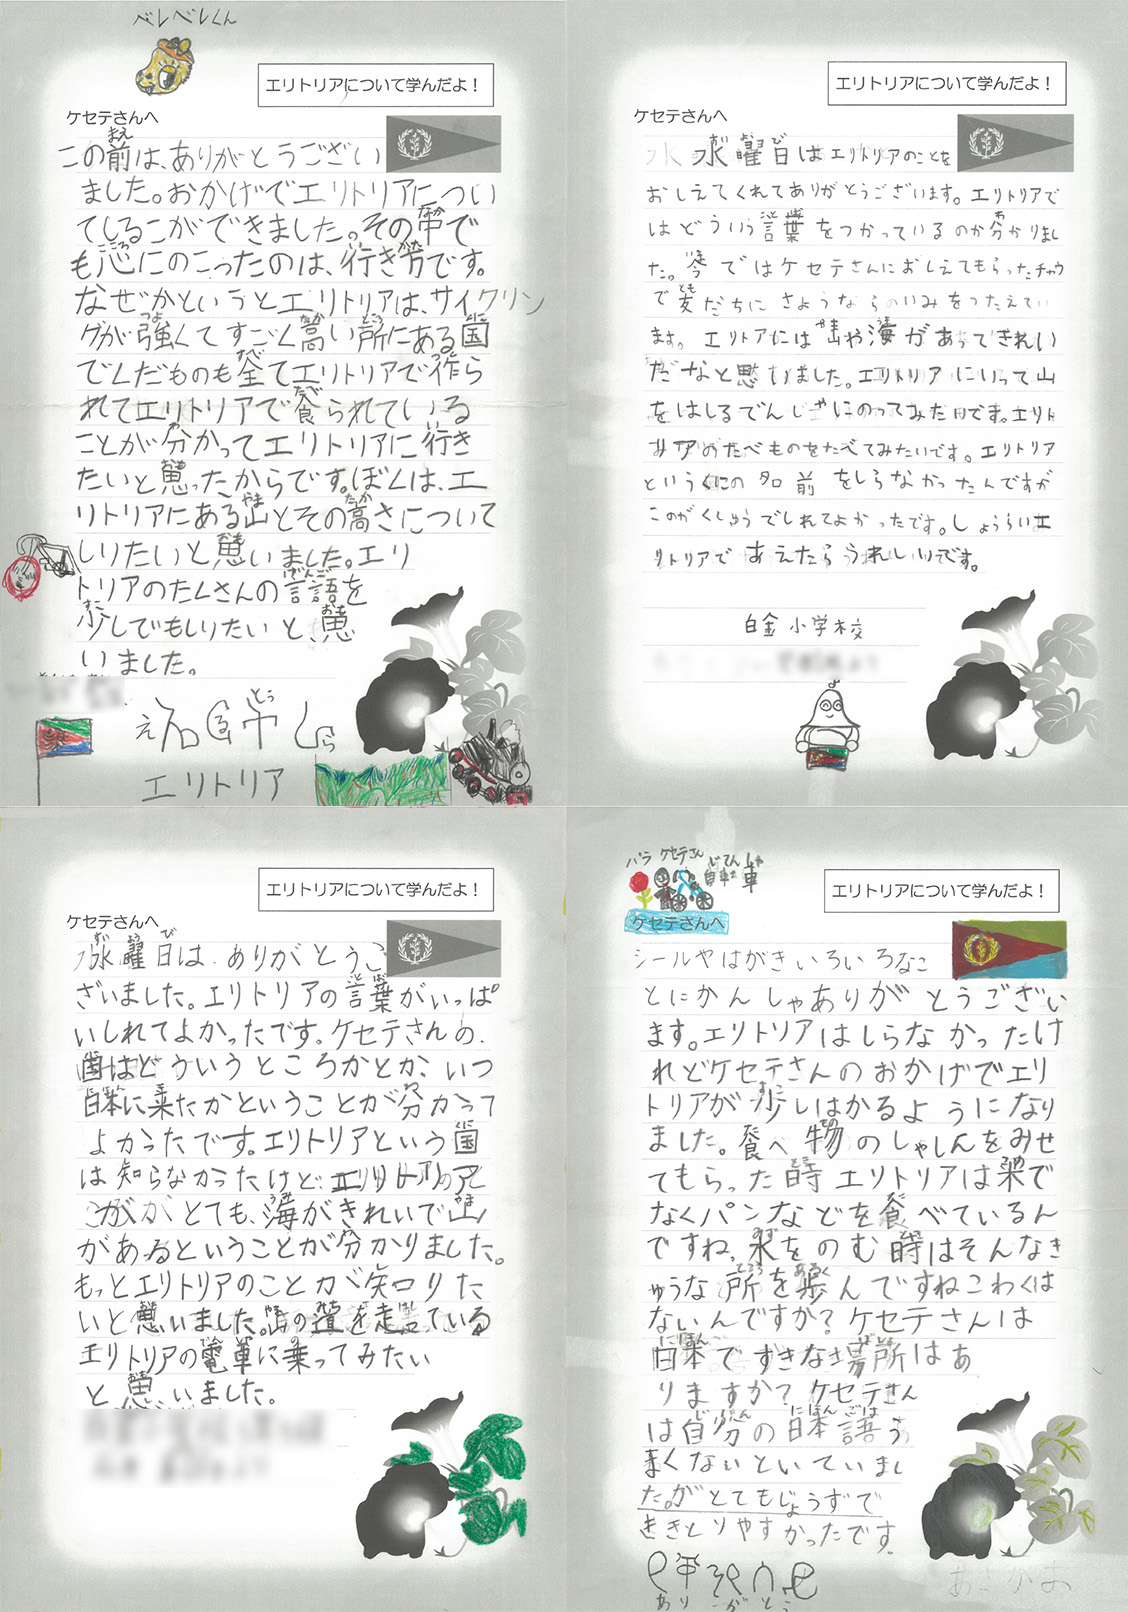 ベレベレくん
エリトリアについて学んだよ！
ケセテさんへ
この前は、ありがとうござい
ました。おかげでエリトリアについ
てしるこができました。その中で
も心にのこったのは、行き方です。
なぜかというとエリトリアは、サイクリン
グが強くてすごく高い所にある国
でくだものも全てエリトリアで作ら
れてエリトリアで食られている
ことが分かってエリトリアに行き
たいと思ったからです。ぼくは、エ
リトリアにある山とその高さについて
しりたいと思いました。エリ
トリアのたくさんの言語を
少しでもしりたいと、思
いました。
エリトリア
エリトリアについて学んだよ！
ケセテさんへ
水曜日はエリトリアのことを
おしえてくれてありがとうございます。エリトリアで
はどういう言葉をつかっているのか分かりまし
た。今ではケセテさんにおしえてもらったチャウ
で友だちにさようならのいみをつたえてい
ます。エリトアには山や海があってきれい
だなと思いました。エリトリアにいって山
をはしるでんしゃにのってみたいです。エリト
リアのたべものをたべてみたいです。エリトリア
というくにの名前をしらなかったんですが
このがくしゅうでしれてよかったです。しょうらいエ
リトリアであえたらうれしいです。
白金小学校
エリトリアについて学んだよ！
ケセテさんへ
水曜日は、ありがとうご
ざいました。エリトリアの言葉がいっぱ
いしれてよかったです。ケセテさんの、
国はどういうところかとか、いつ
日本に来たかということが分かって
よかったです。エリトリアという国
は知らなかったけど、エリトリアの
がとても、海がきれいで山
があるということが分かりました。
もっとエリトリアのことが知りた
いと思いました。山の道を走っている
エリトリアの電車に乗ってみたい
と思いました。
バラ ケセテさん 自転車
エリトリアについて学んだよ！
ケセテさんへ
シールやはがきいろいろなこ
とにかんしゃありがとうござい
ます。エリトリアはしらなかったけ
れどケセテさんのおかげでエリ
トリアが少しはかるようになり
ました。食べ物のしゃしんをみせ
てもらった時エリトリアは米で
なくパンなどを食べているん
ですね。水をのむ時はそんなき
ゅうな所を歩んですねこわくは
ないんですか？ケセテさんは
日本ですきな場所はあ
りますか？ケセテさん
は自分の日本語う
まくないといていまし
た。がとてもじょうずで
ききとりやすかったです。
ありがとう
あさがお